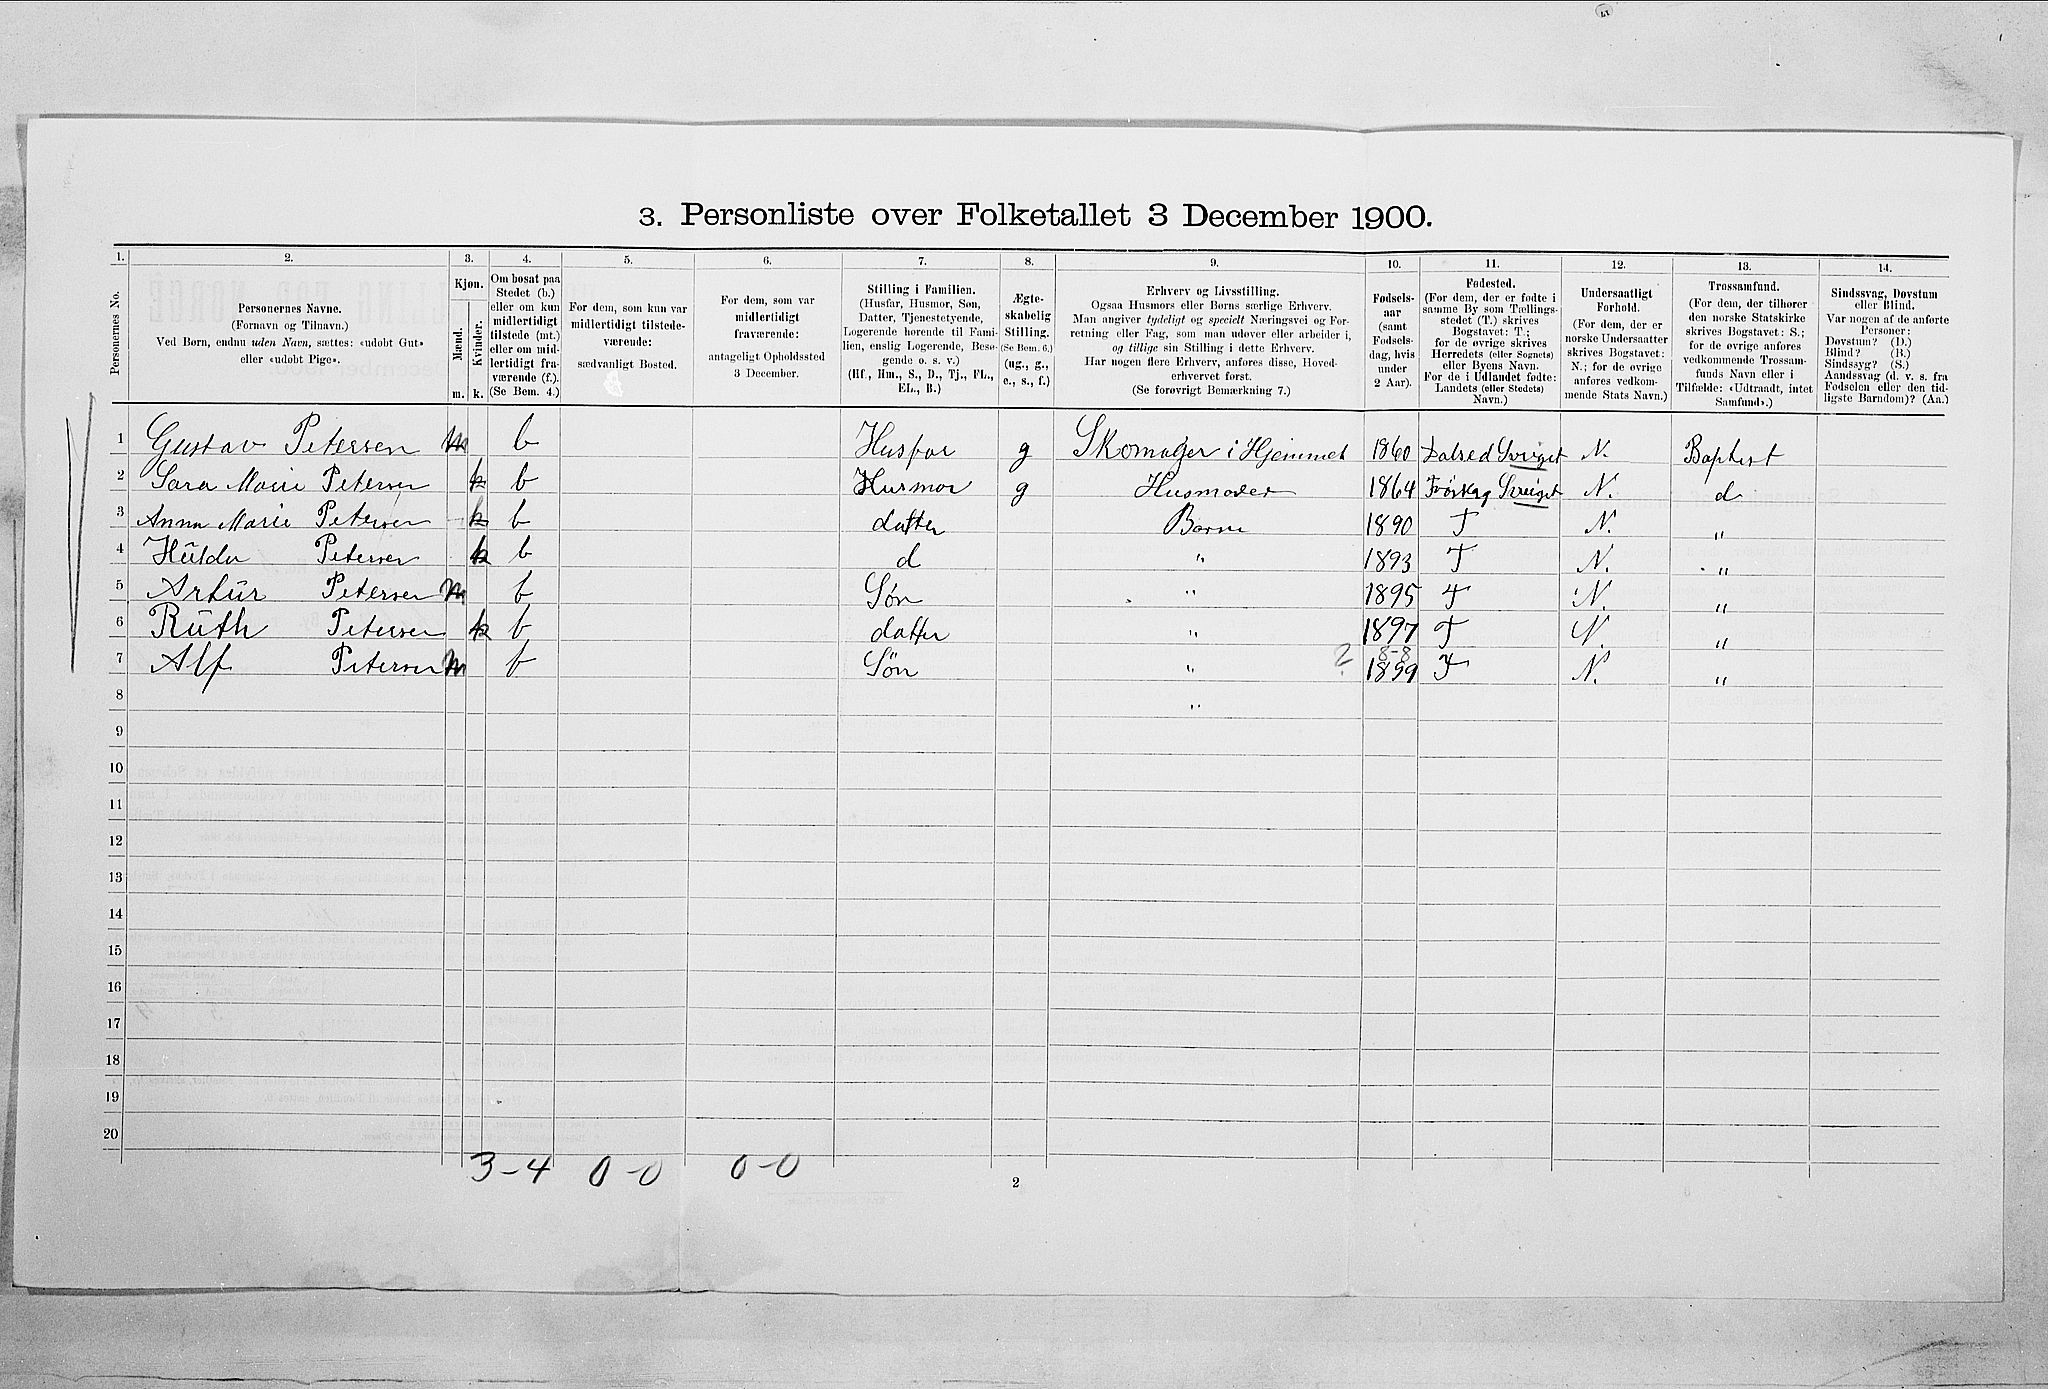 3. Personliste over Folketallet 3 December 1900.
1. 2. 3. 4. 5. 6. 7. 8. 9. 10. 11. 12. 13. 14.
Personernes No.
Personernes Navne.
(Fornavn og Tilnavn.)
Ved Børn, endnu uden Navn, sættes: «udobt Gut»
eller «udobt Pige».
Kjøn.
Mænd.
Kvinder.
m. k.
Om bosat paa
Stedet (b.)
eller om kun
midlertidigt
tilstede (mt.)
eller om mid-
lertidigt fra-
værende (f.).
(Se Bem. 4.)
For dem, som kun var
midlertidigt tilstede-
værende:
sædvanligt Bosted.
For dem, som var
midlertidigt
fraværende:
antageligt Opholdssted
3 December.
Stilling i Familien.
(Husfar, Husmor, Søn,
Datter, Tjenestetyende,
Logerende hørende til Fami-
lien, enslig Logerende, Besø-
gende o. s. v.)
(Hf., Hm., S., D., Tj., FL.,
EL., B.)
Ægte-
skabelig
Stilling.
(Se Bem. 6.)
(ug., g.,
e., s., f.)
Erhverv og Livsstilling.
Ogsaa Husmors eller Børns særlige Erhverv.
Man angiver tydeligt og specielt Næringsvei og For-
retning eller Fag, som man udøver eller arbeider i,
og tillige sin Stilling i dette Erhverv.
Har nogen flere Erhverv, anføres disse, Hoved-
erhvervet først.
(Se forøvrigt Bemærkning 7.)
Fødsels-
aar
(samt
Fødsels-
dag, hvis
under
2 Aar).
Fødested.
(For dem, der er fødte i
samme By som Tællings-
stedet (T.) skrives
Bogstavet: T.;
for de øvrige skrives
Herredets (eller Sognets)
eller Byens Navn.
For de i Udlandet fødte:
Landets (eller Stedets)
Navn.)
Undersaatligt
Forhold.
(For dem, der er
norske Undersaatter
skrives Bogstavet:
N.; for de øvrige
anføres vedkom-
mende Stats Navn.)
Trossamfund.
(For dem, der tilhører
den norske Statskirke
skrives Bogstavet: S.;
for de øvrige anføres
vedkommende Trossam-
funds Navn eller i
Tilfælde: «Udtraadt, intet
Samfund».)
Sindssvag, Døvstum
eller Blind.
Var nogen af de anførte
Personer:
Døvstum? (D.)
Blind? (B.)
Sindssyg? (S.)
Aandssvag (d. v. s. fra
Fødselen eller den tid-
ligste Barndom)? (Aa.)
1 Gustav Petersen m b Husfar g Skomager i Hjemmet 1860 Dalsed Sveriget N. Baptist
2 Sara Marie Petersen k b Husmor g Husmoder 1864 Sveriget N. d
3 Anna Marie Petersen k b datter Barn 1890 T N. "
4 Hulda Petersen k b d " 1893 T N. "
5 Artur Petersen m b Søn " 1895 T N. "
6 Ruth Petersen k b datter " 1897 T N. "
7 Alf Petersen m b Søn " ? 8-8 1899 T N. "
8 "
9
10
11
12
13
14
15
16
17
18
19
20
3-4 0-0 0-0
2